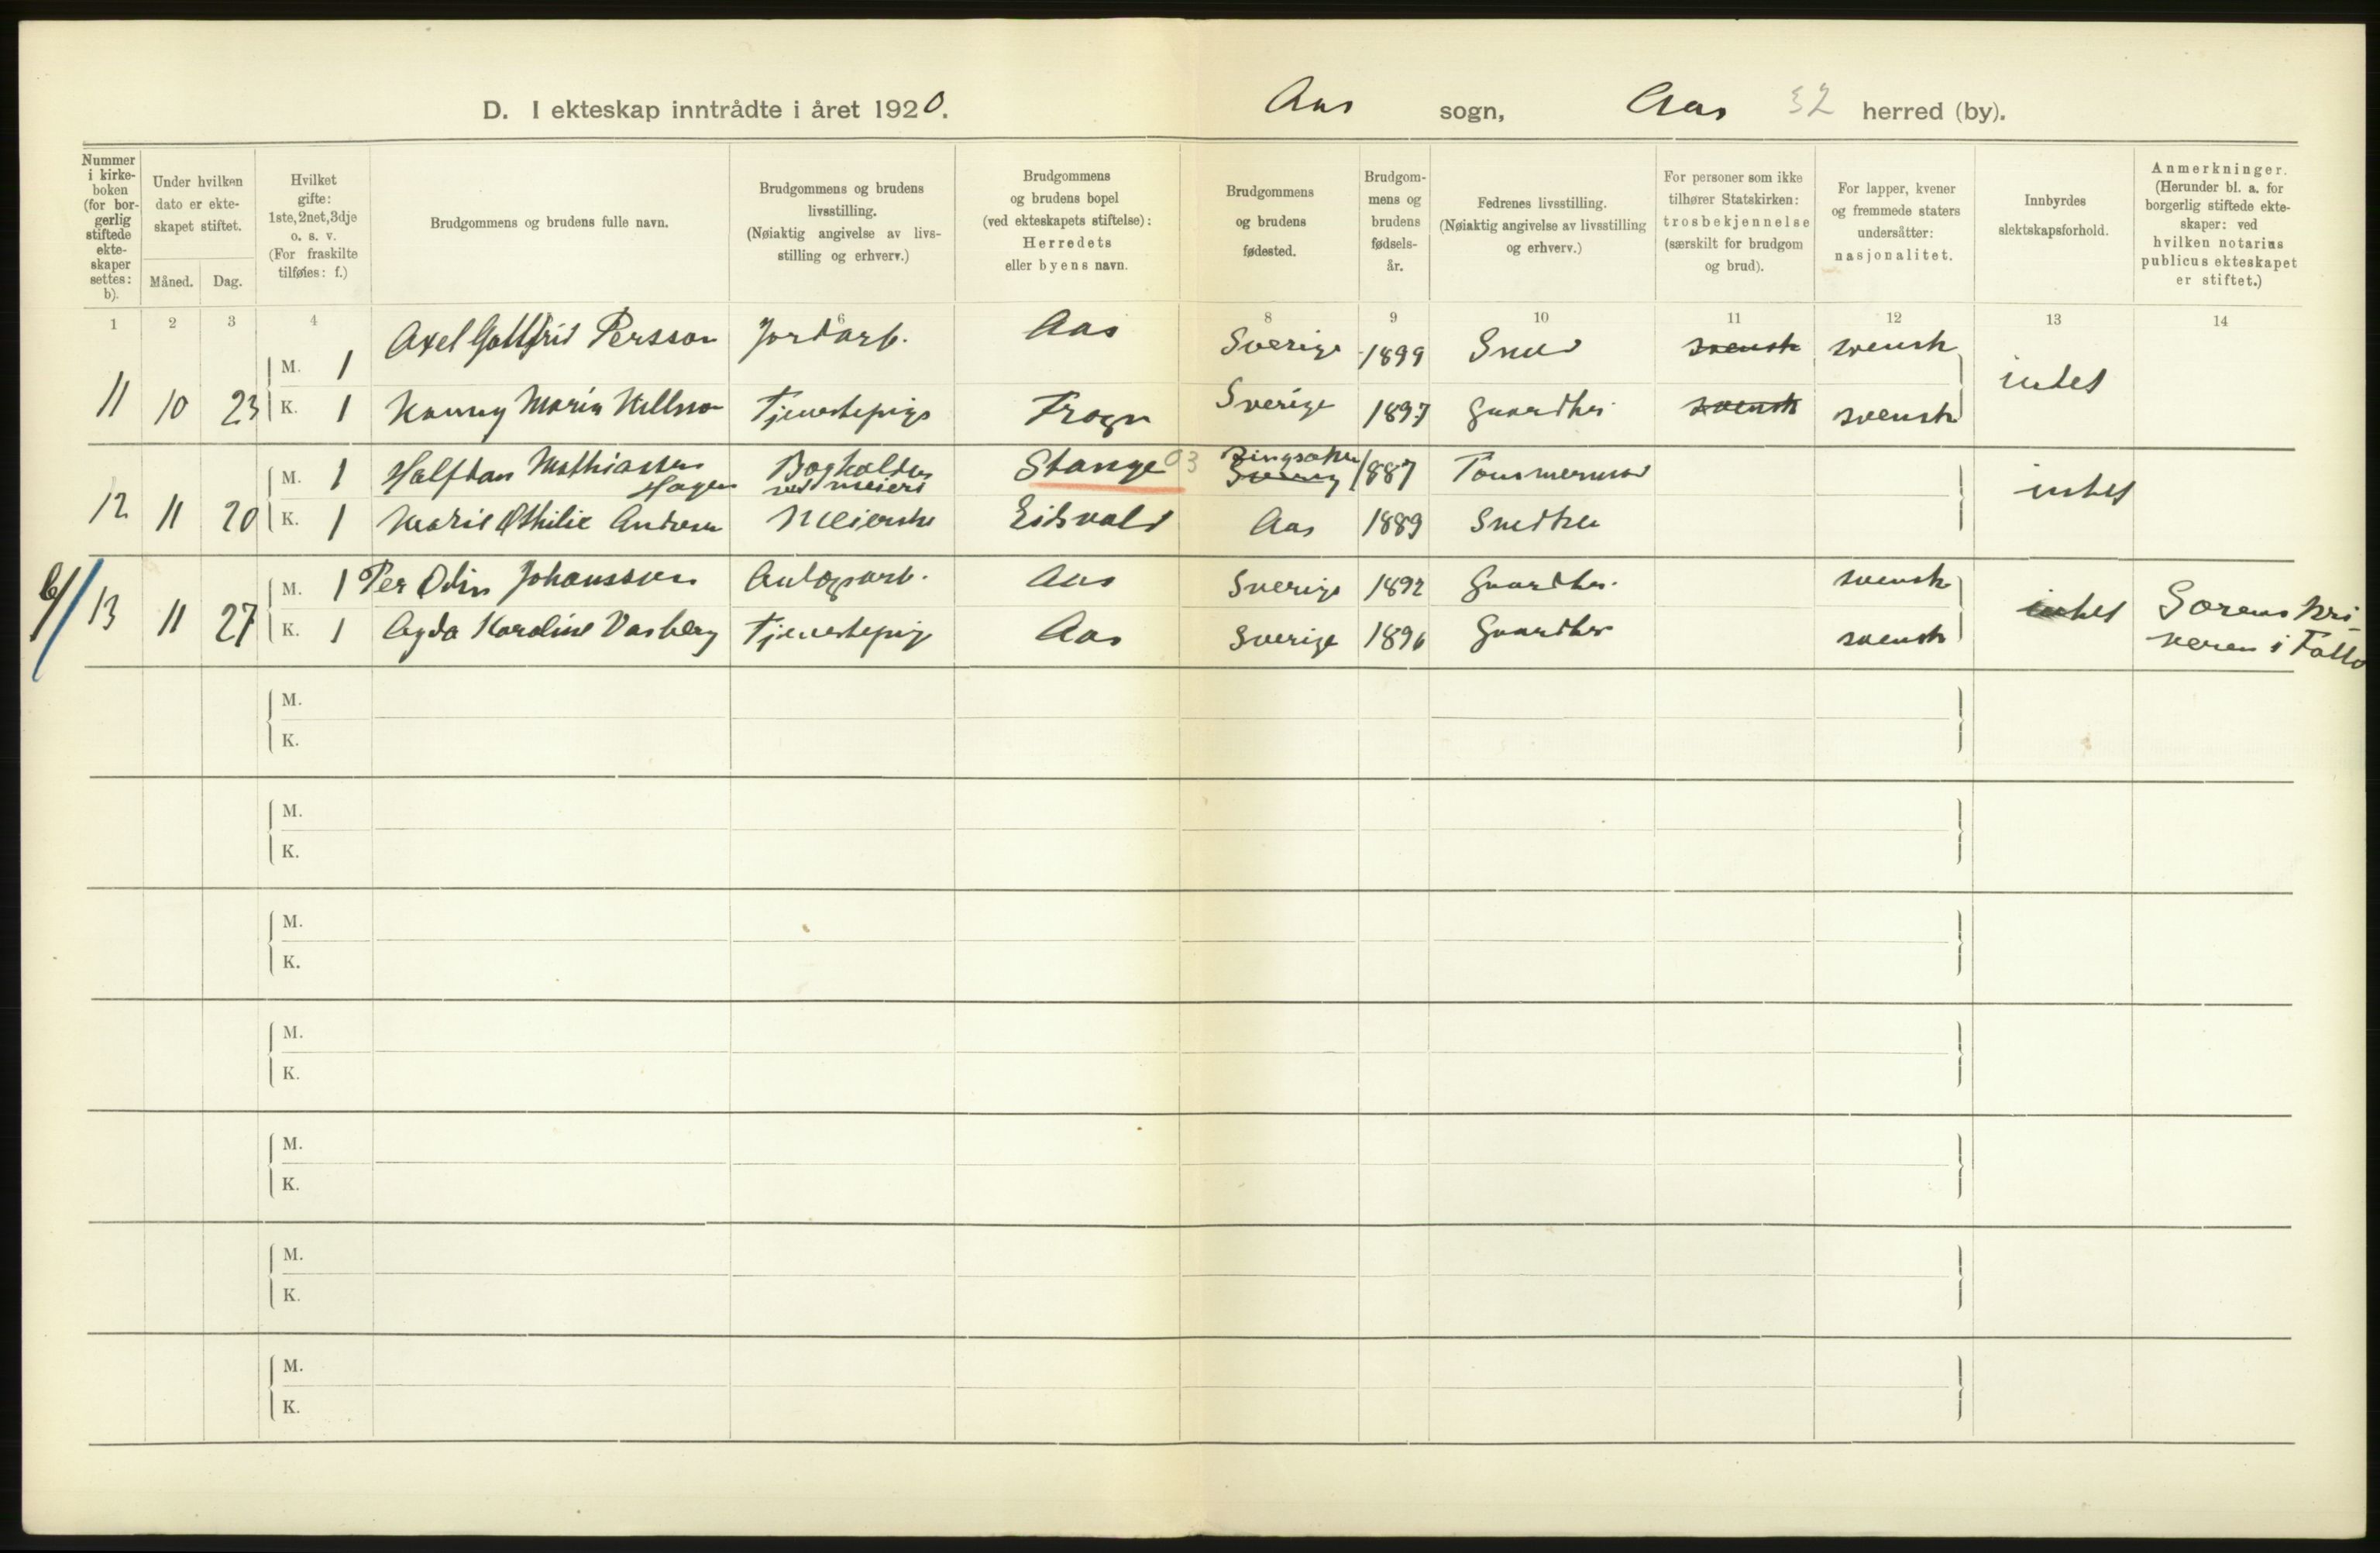 D. I ekteskap inntrådte i året 1920. Aas sogn, Aas 32 herred (by).
Nummer
i kirke-
boken
(for bor-
gerlig
stiftede
ekte-
skaper
settes:
b).
Under hvilken
dato er ekte-
skapet stiftet.
Måned. Dag.
Hvilket
gifte:
1ste, 2net, 3dje
o. s. v.
(For fraskilte
tilføies: f.)
Brudgommens og brudens fulle navn.
Brudgommens og brudens
livsstilling.
(Nøiaktig angivelse av livs-
stilling og erhverv.)
Brudgommens
og brudens bopel
(ved ekteskapets stiftelse):
Herredets
eller byens navn.
Brudgommens
og brudens
fødested.
Brudgom-
mens og
brudens
fødsels-
år.
Fedrenes livsstilling.
(Nøiaktig angivelse av livsstilling
og erhverv.)
For personer som ikke
tilhører Statskirken:
trosbekjennelse
(særskilt for brudgom
og brud).
For lapper, kvener
og fremmede staters
undersåtter:
nasjonalitet.
Innbyrdes
slektskapsforhold.
Anmerkninger.
(Herunder bl. a. for
borgerlig stiftede ekte-
skaper: ved
hvilken notarius
publicus ekteskapet
er stiftet.)
1 2 3 4 6 8 9 10 11 12 13 14
M. 1 Axel Gottfrid Persson Jordarb. Aas Sverige 1899 Smed svensk svensk
11 10 23 K. 1 Nanny Maria Nillson Tjenestepige Frogn Sverige 1897 Gaardbr. svensk svensk intet
M. 1 Halfdan Mathiassen Hagen Bogholder ved meieri Stange 03 Ringsaker 1887 Tømmermand
12 11 20 K. 1 Marie Othilie Andersen Meierske Eidsvold Aas 1889 Snedker intet
M. 1 Per Odin Johanssen Anlægsarb. Aas Sverige 1892 Gaardbr. svensk
b/ 13 11 27 K. 1 Agda Karoline Vasberg Tjenestepige Aas Sverige 1896 Gaardbr svensk intet Sorenskri-
veren i Follo
M.
K.
M.
K.
M.
K.
M.
K.
M.
K.
M.
K.
M.
K.